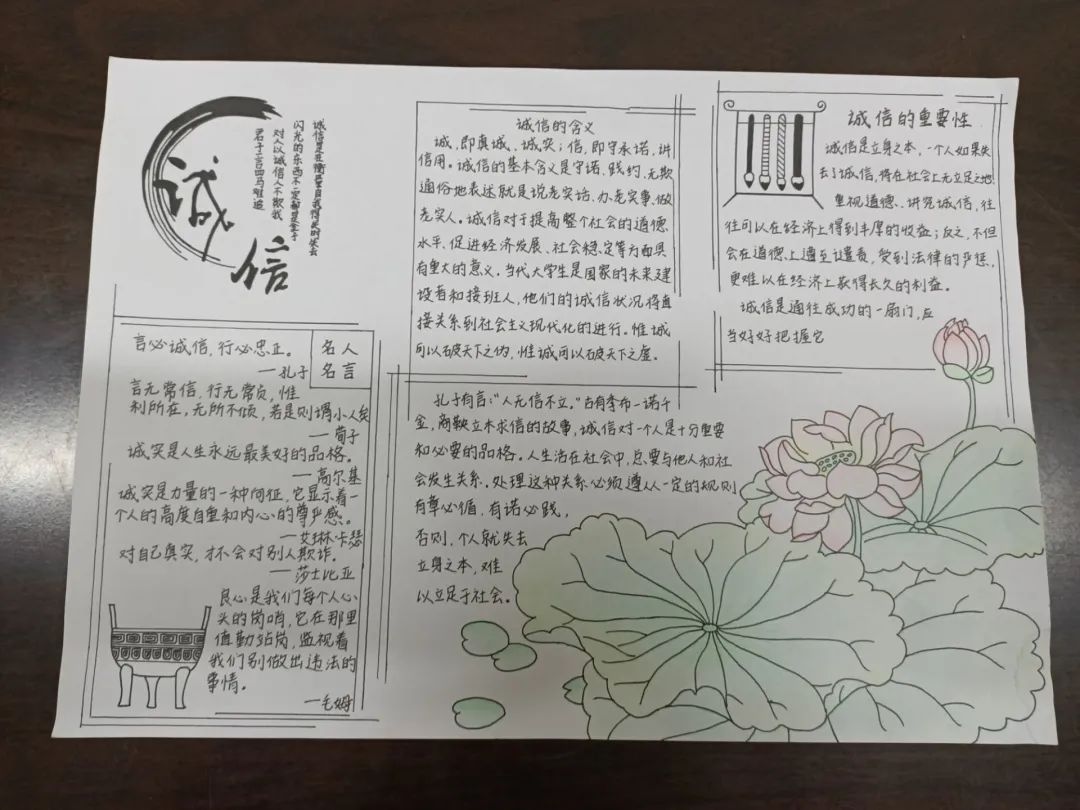 诚信
诚信是在衡量自我得失时失去
闪光的东西不一定都是金子
对人以诚信人不欺我
君子一言四马难追
诚信的含义
诚,即真诚、诚实;信,即守承诺,讲
信用。诚信的基本含义是守诺、践约、无欺
通俗地表述就是说老实话、办老实事、做
老实人。诚信对于提高整个社会的道德
水平、促进经济发展、社会稳定等方面具
有重大的意义。当代大学生是国家的未来建
设者和接班人,他们的诚信状况将直
接关系到社会主义现代化的进行。惟诚
可以破天下之伪,惟诚可以破天下之虚。
诚信的重要性
诚信是立身之本,一个人如果失
去了诚信,将在社会上无立足之地
重视道德、讲究诚信,往
往可以在经济上得到丰厚的收益;反之,不但
会在道德上遭至谴责,受到法律的严惩,
更难以在经济上获得长久的利益。
诚信是通往成功的一扇门,应
当好好把握它
名人
名言
言必诚信,行必忠正。
—孔子
言无常信,行无常贞,惟
利所在,无所不倾,若是则谓小人矣
—荀子
诚实是人生永远最美好的品格。
—高尔基
诚实是力量的一种向征,它显示着一
个人的高度自重和内心的尊严感。
—艾琳·卡瑟
对自己真实,才不会对别人欺诈。
—莎士比亚
良心是我们每个人心
头的岗哨,它在那里
值勤站岗,监视着
我们别做出违法的
事情。
—毛姆
孔子有言:“人无信不立。”古有季布一诺千
金,商鞅立木求信的故事,诚信对一个人是十分重要
和必要的品格。人生活在社会中,总要与他人和社
会发生关系。处理这种关系必须遵从一定的规则
有章必循,有诺必践,
否则,个人就失去
立身之本,难
以立足于社会。